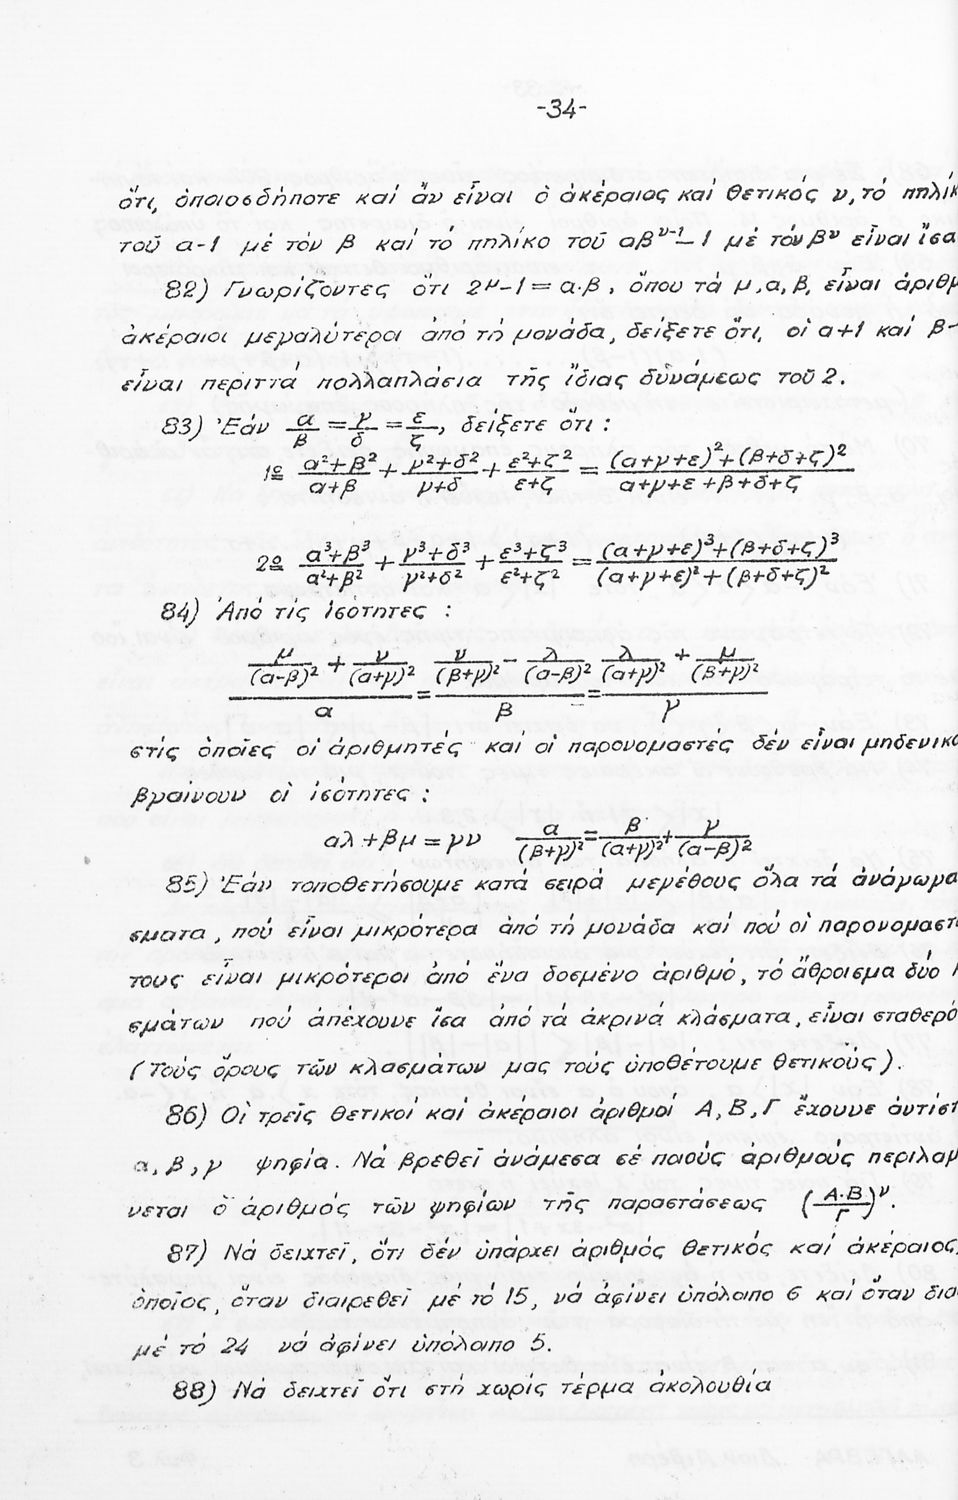 -34-
ὅτι, ὁποιοσδήποτε καί ἄν εἶναι ὁ ἀκέραιος καί θετικός ν, τό πηλίκ
τοῦ α-1 μέ τόν β καί τό πηλίκο τοῦ αβ^(ν-1)-1 μέ τόν β^ν εἶναι ἴσα
82) Γνωρίζοντες ὅτι 2^μ-1=α·β, ὅπου τά μ,α,β, εἶναι ἀριθμ
ἀκέραιοι μεγαλύτεροι ἀπό τή μονάδα, δείξετε ὅτι, οἱ α+1 καί β-
εἶναι περιττά πολλαπλάσια τῆς ἴδιας δυνάμεως τοῦ 2.
83) Ἐάν α/β = γ/δ = ε/ζ, δείξετε ὅτι :
1º (α²+β²)/(α+β) + (γ²+δ²)/(γ+δ) + (ε²+ζ²)/(ε+ζ) = ((α+γ+ε)²+(β+δ+ζ)²)/(α+γ+ε+β+δ+ζ)
2º (α³+β³)/(α²+β²) + (γ³+δ³)/(γ²+δ²) + (ε³+ζ³)/(ε²+ζ²) = ((α+γ+ε)³+(β+δ+ζ)³)/((α+γ+ε)²+(β+δ+ζ)²)
84) Ἀπό τίς ἰσότητες :
(μ/(α-β)² + ν/(α+γ)²)/α = (ν/(β+γ)² - λ/(α-β)²)/β = (λ/(α+γ)² + μ/(β+γ)²)/γ
στίς ὁποίες οἱ ἀριθμητές καί οἱ παρονομαστές δέν εἶναι μηδενικ
βγαίνουν οἱ ἰσότητες :
αλ+βμ=γν α/(β+γ)² = β/(α+γ)² + γ/(α-β)²
85) Ἐάν τοποθετήσουμε κατά σειρά μεγέθους ὅλα τά ἀνάγωγα
σματα, πού εἶναι μικρότερα ἀπό τή μονάδα καί πού οἱ παρονομαστ
τους εἶναι μικρότεροι ἀπό ἕνα δοσμένο ἀριθμό, τό ἄθροισμα δύο
σμάτων πού ἀπέχουνε ἴσα ἀπό τά ἀκρινά κλάσματα, εἶναι σταθερό
(Τούς ὅρους τῶν κλασμάτων μας τούς ὑποθέτουμε θετικούς).
86) Οἱ τρεῖς θετικοί καί ἀκέραιοι ἀριθμοί Α,Β,Γ ἔχουνε ἀντίστ
α,β,γ ψηφία. Νά βρεθεῖ ἀνάμεσα σέ ποιούς ἀριθμούς περιλαμ
νεται ὁ ἀριθμός τῶν ψηφίων τῆς παραστάσεως (Α·Β/Γ)^ν.
87) Νά δειχτεῖ, ὅτι δέν ὑπάρχει ἀριθμός θετικός καί ἀκέραιος,
ὁποῖος, ὅταν διαιρεθεῖ μέ τό 15, νά ἀφίνει ὑπόλοιπο 6 καί ὅταν δια
μέ τό 24 νά ἀφίνει ὑπόλοιπο 5.
88) Νά δειχτεῖ ὅτι στή χωρίς τέρμα ἀκολουθία